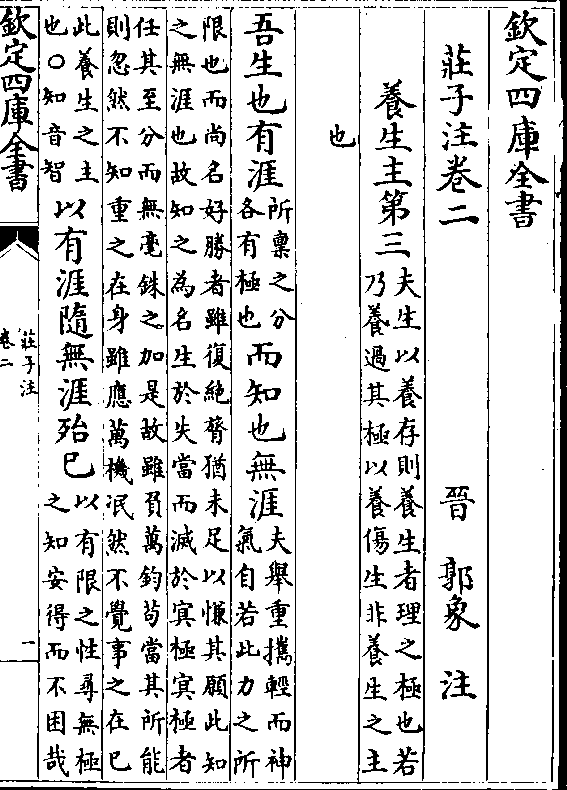 欽定四庫全書
莊子注卷二　晉　郭象　注
養生主第三
夫生以養存則養生者理之極也若
乃養過其極以養傷生非養生之主
也
吾生也有涯
所稟之分
各有極也
而知也無涯
夫舉重攜輕而神
氣自若此力之所
限也而尚名好勝者雖復絶膂猶未足以慊其願此知
之無涯也故知之為名生於失當而滅於冥極冥極者
任其至分而無毫銖之加是故雖負萬鈞苟當其所能
則忽然不知重之在身雖應萬機泯然不覺事之在已
此養生之主
也○知音智
以有涯隨無涯殆已
以有限之性尋無極
之知安得而不困哉
欽定四庫全書
莊子注
卷二
一